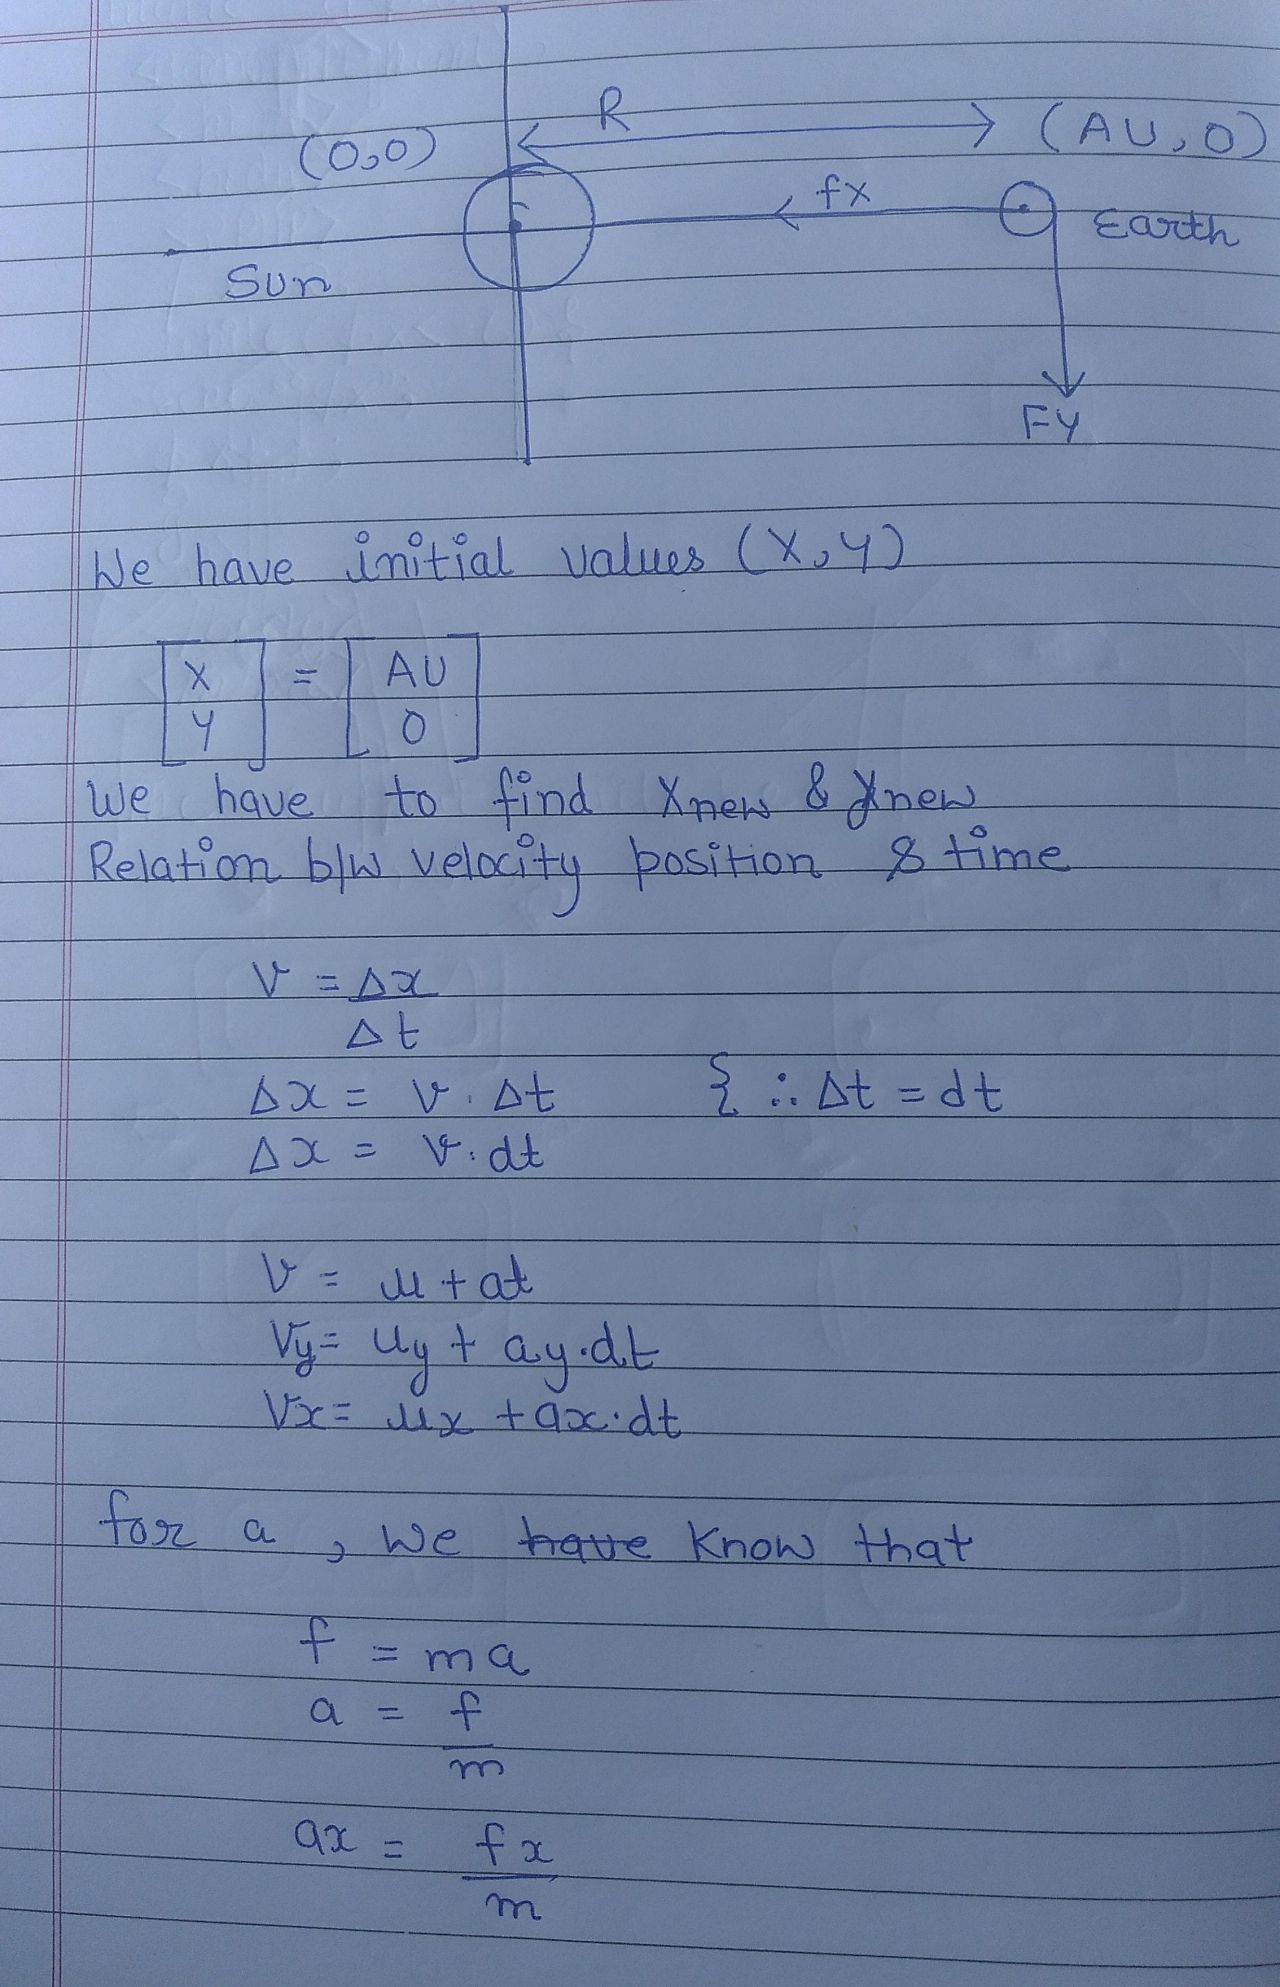 R
(0,0)
(AU,0)
fx
Earth
Sun
FY
We have initial values (X,Y)
[X Y] = [AU 0]
We have to find Xnew & Ynew
Relation b/w velocity position & time
v = Δx
Δt
Δx = v . Δt { ∴ Δt = dt
Δx = v . dt
v = u + at
Vy = uy + ay.dt
Vx = ux + ax.dt
for a , we have know that
f = ma
a = f
m
ax = fx
m